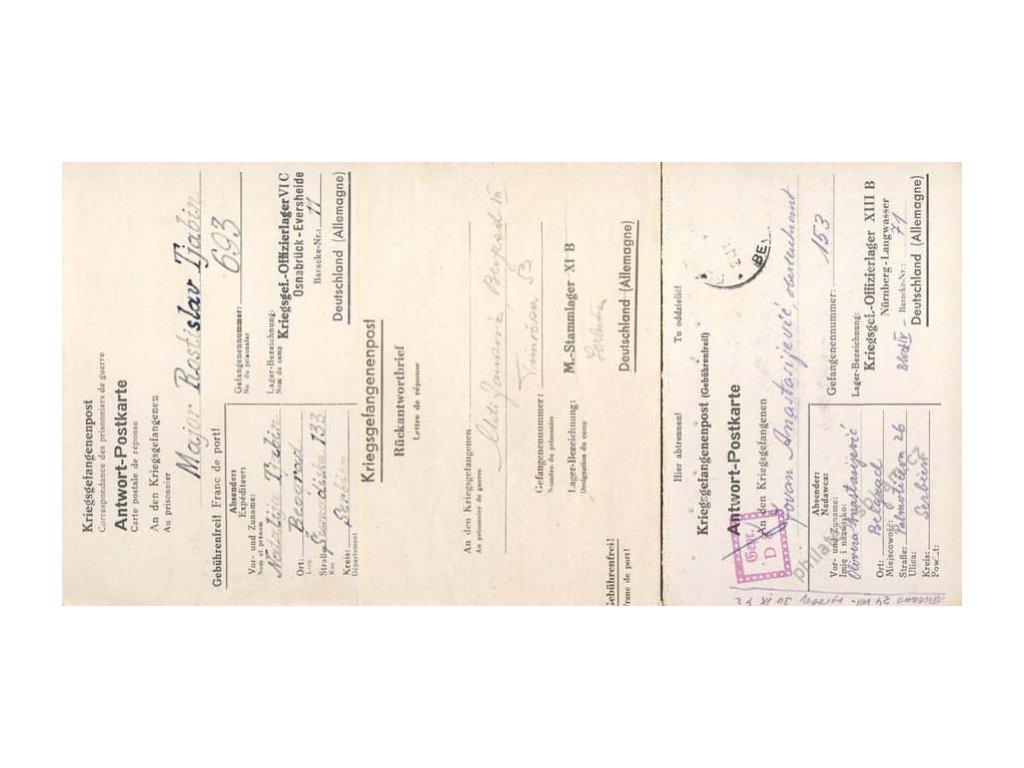 Kriegsgefangenenpost
Correspondance des prisonniers de guerre
Antwort-Postkarte
Carte postale de réponse
An den Kriegsgefangenen
Au prisonnier
Major Rostislav Trjabin
Gebührenfrei! Franc de port!
Absender:
Expéditeur:
Vor- und Zuname:
Nom et prénom
Natalija Trjabin
Ort: Beograd
Lieu
Straße: 133
Rue
Kreis: Serbien
Département
Gefangenennummer: 693
No. du prisonnier
Lager-Bezeichnung:
Nom du camp
Kriegsgef.-Offizierlager VI C
Osnabrück-Eversheide
Baracke-Nr.: 11
Deutschland (Allemagne)
Kriegsgefangenenpost
Rückantwortbrief
Lettre de réponse
An den Kriegsgefangenen
Au prisonnier de guerre
Gefangenennummer: 53
Numéro du prisonnier
Lager-Bezeichnung: M.-Stammlager XI B
Désignation du camp
Serbien
Deutschland (Allemagne)
Gebührenfrei!
Franc de port!
Hier abtrennen! Tu oddzielić!
Kriegsgefangenenpost (Gebührenfrei)
Antwort-Postkarte
An den Kriegsgefangenen
BE
Jovan Anastasijević, oberleutnant
Gepr.
D
Phila
Absender:
Nadawca:
Vor- und Zuname:
Imię i nazwisko:
Olivera Anastasijević
Ort: Belgrad
Miejscowość:
Straße: Palmotićeva 26
Ulica:
Kreis: Serbien
Powiat:
Gefangenennummer: 153
Lager-Bezeichnung:
Kriegsgef.-Offizierlager XIII B
Nürnberg-Langwasser
Baracke-Nr.: 71
Deutschland (Allemagne)